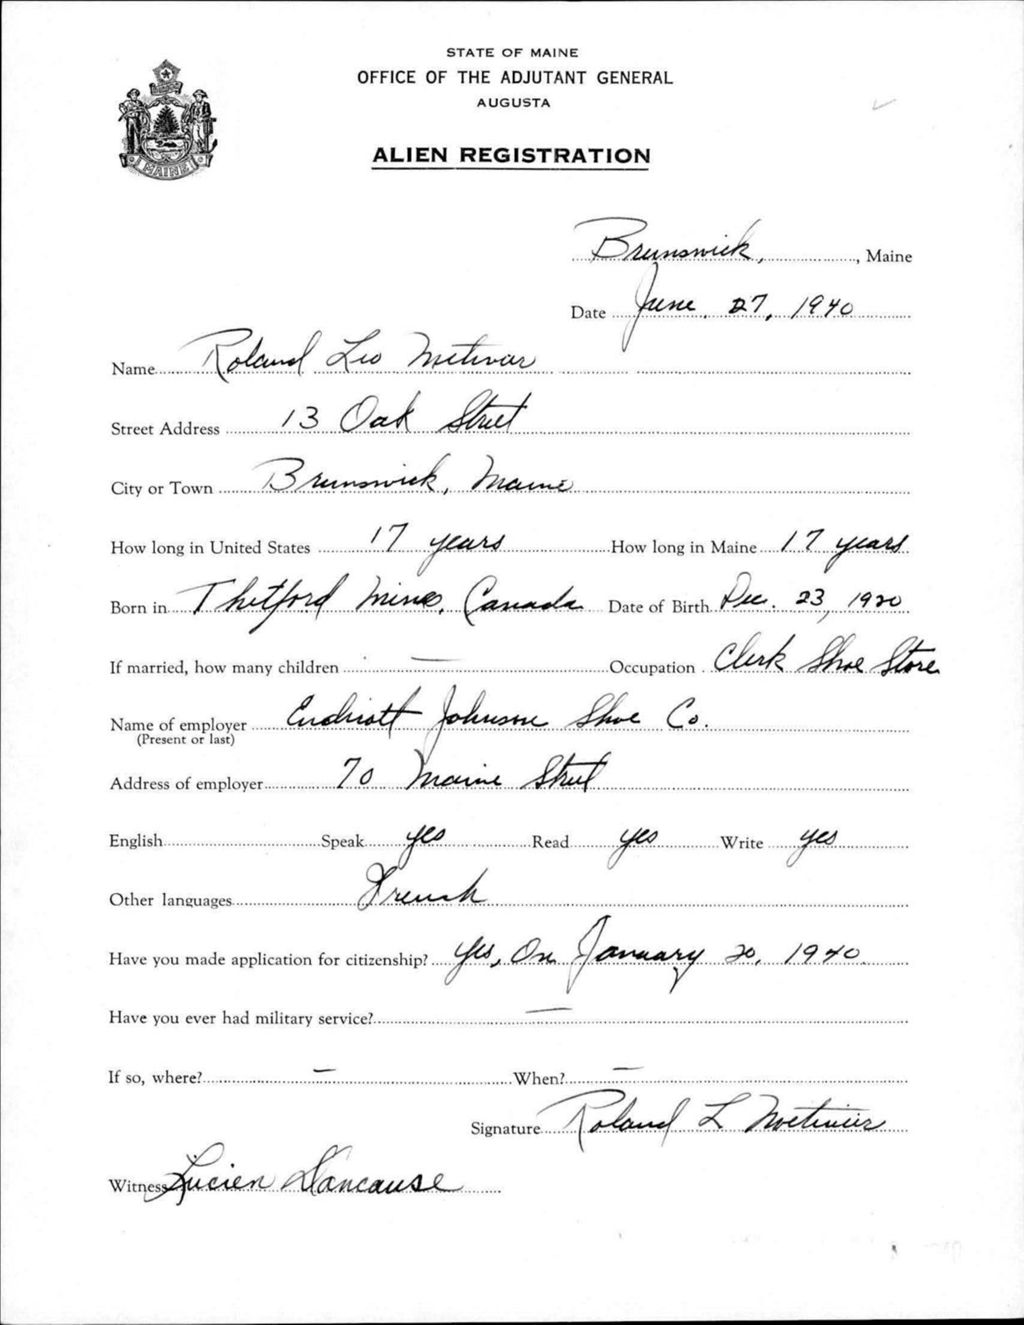 STATE OF MAINE
OFFICE OF THE ADJUTANT GENERAL
AUGUSTA
ALIEN REGISTRATION
MAINE
Brunswick, , Maine
Date June 27, 1940
Name Roland Leo
Street Address 13 Oak Street
City or Town Brunswick, Maine
How long in United States 17 years How long in Maine 17 years
Born in Thetford Mines, Canada Date of Birth Dec. 23, 1920
If married, how many children — Occupation Clerk Shoe Store
Name of employer Endicott Johnson Shoe Co.
(Present or last)
Address of employer 70 Maine Street
English Speak yes Read yes Write yes
Other languages French
Have you made application for citizenship? Yes, On January 20, 1940
Have you ever had military service? —
If so, where? — When? —
Signature Roland L Metivier
Witness Lucien Dancause